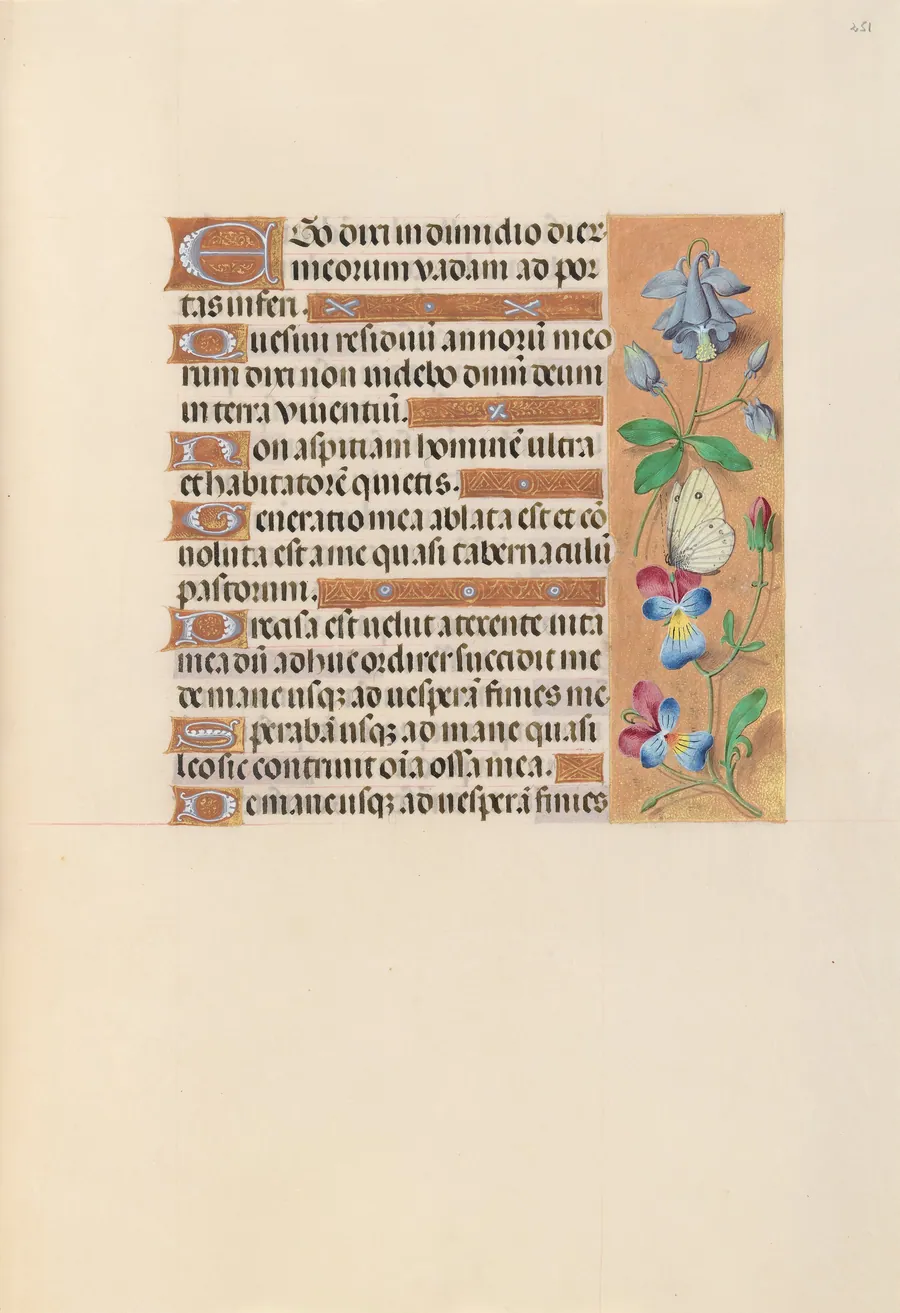 251
Ego dixi in dimidio dier
meorum vadam ad por
tas inferi.
Quesiui residuū annorū meo
rum dixi non uidebo dnm̄ deum
in terra viuentiū.
Non aspiciam hominē ultra
et habitatorē quietis.
Generatio mea ablata est et cō
uoluta est a me quasi tabernaculū
pastorum.
Precisa est uelut a texente uita
mea dū adhuc ordirer succidit me
de mane usqꝫ ad uesperā finies me
Sperabā usqꝫ ad mane quasi
leo sic contriuit oīa ossa mea.
De mane usqꝫ ad uesperā finies